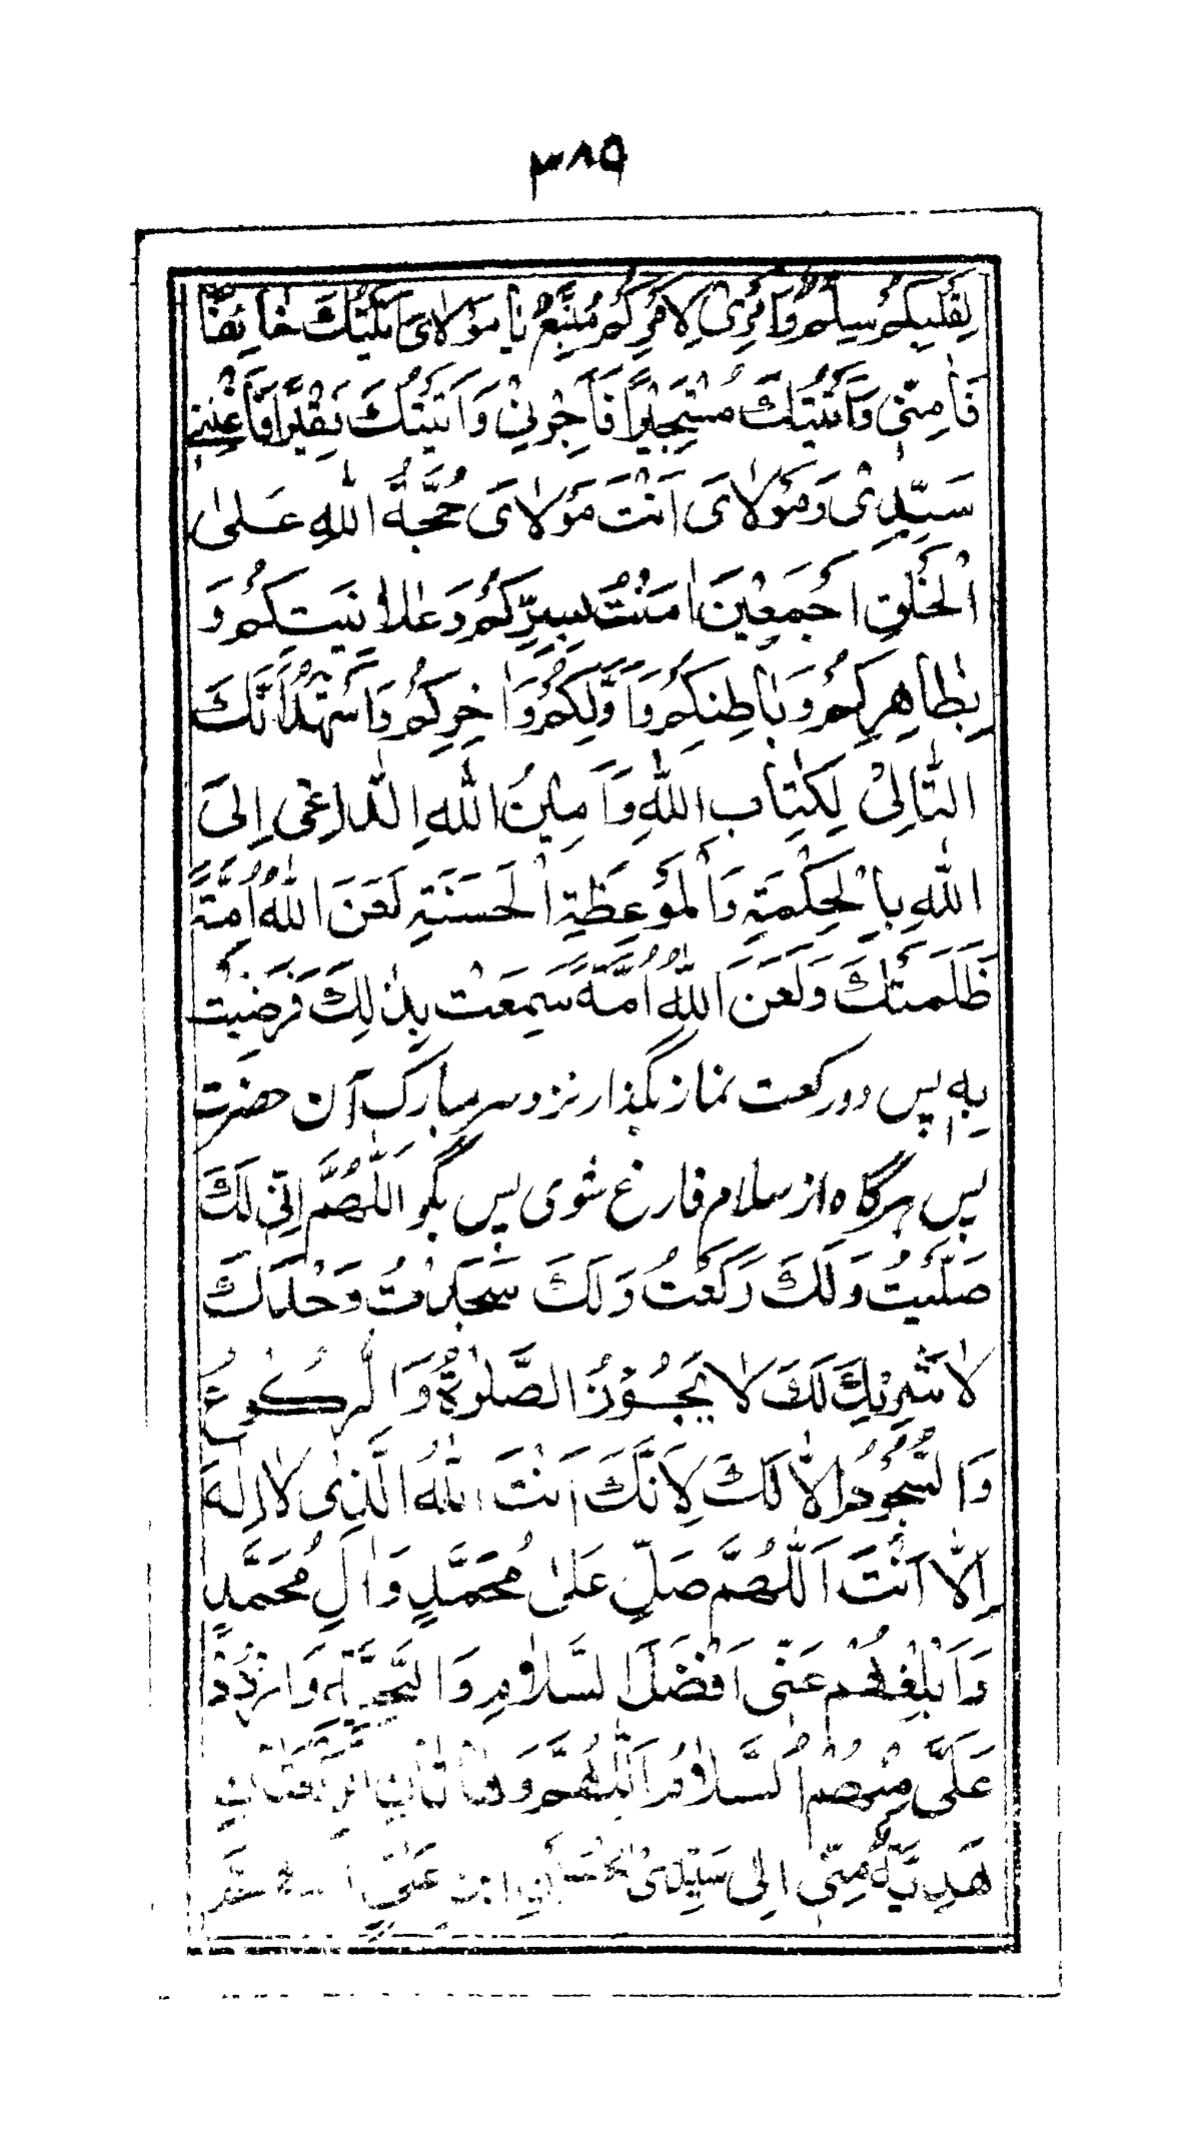 ۳۸۵
لِقَلْبِكُمْ سِلْمٌ وَاَمْرِیْ لِاَمْرِكُمْ مُتَّبِعٌ یٰا مَوْلاٰیَ اَتَیْتُكَ خٰائِفًا
فَاٰمِنّیْ وَاَتَیْتُكَ مُسْتَجِیْرًا فَاَجِرْنِیْ وَاَتَیْتُكَ فَقِیْرًا فَاَغْنِنِیْ
سَیِّدِیْ وَمَوْلاٰیَ اَنْتَ مَوْلاٰیَ حُجَّةُ اللّٰهِ عَلیٰ
الْخَلْقِ اَجْمَعِیْنَ اٰمَنْتُ بِسِرِّكُمْ وَعَلاٰنِیَتِكُمْ وَ
بِظٰاهِرِكُمْ وَبٰاطِنِكُمْ وَاَوَّلِكُمْ وَاٰخِرِكُمْ وَاَشْهَدُ اَنَّكَ
التّٰالِیْ لِكِتٰابِ اللّٰهِ وَاَمِیْنُ اللّٰهِ الدّٰاعِیْ اِلَی
اللّٰهِ بِالْحِكْمَةِ وَالْمَوْعِظَةِ الْحَسَنَةِ لَعَنَ اللّٰهُ اُمَّةً
ظَلَمَتْكَ وَلَعَنَ اللّٰهُ اُمَّةً سَمِعَتْ بِذٰلِكَ فَرَضِیَتْ
بِهٖ پس دو رکعت نماز بگذار نزد سر مبارک آن حضرت
پس هرگاه از سلام فارغ شوی پس بگو اَللّٰهُمَّ اِنّیْ لَكَ
صَلَّیْتُ وَلَكَ رَكَعْتُ وَلَكَ سَجَدْتُ وَحْدَكَ
لاٰ شَرِیْكَ لَكَ لاٰ یَجُوْزُ الصَّلوٰةُ وَالرُّكُوْعُ
وَالسُّجُوْدُ اِلاّٰ لَكَ لِاَنَّكَ اَنْتَ اللّٰهُ الَّذِیْ لاٰ اِلٰهَ
اِلاّٰ اَنْتَ اَللّٰهُمَّ صَلِّ عَلیٰ مُحَمَّدٍ وَاٰلِ مُحَمَّدٍ
وَاَبْلِغْهُمْ عَنّیْ اَفْضَلَ السَّلاٰمِ وَالتَّحِیَّةِ وَارْدُدْ
عَلَیَّ مِنْهُمُ السَّلاٰمَ اَللّٰهُمَّ وَهٰاتٰانِ الرَّكْعَتٰانِ
هَدِیَّةٌ مِنّیْ اِلیٰ سَیِّدِیْ الْحُسَیْنِ ابْنِ عَلِیٍّ